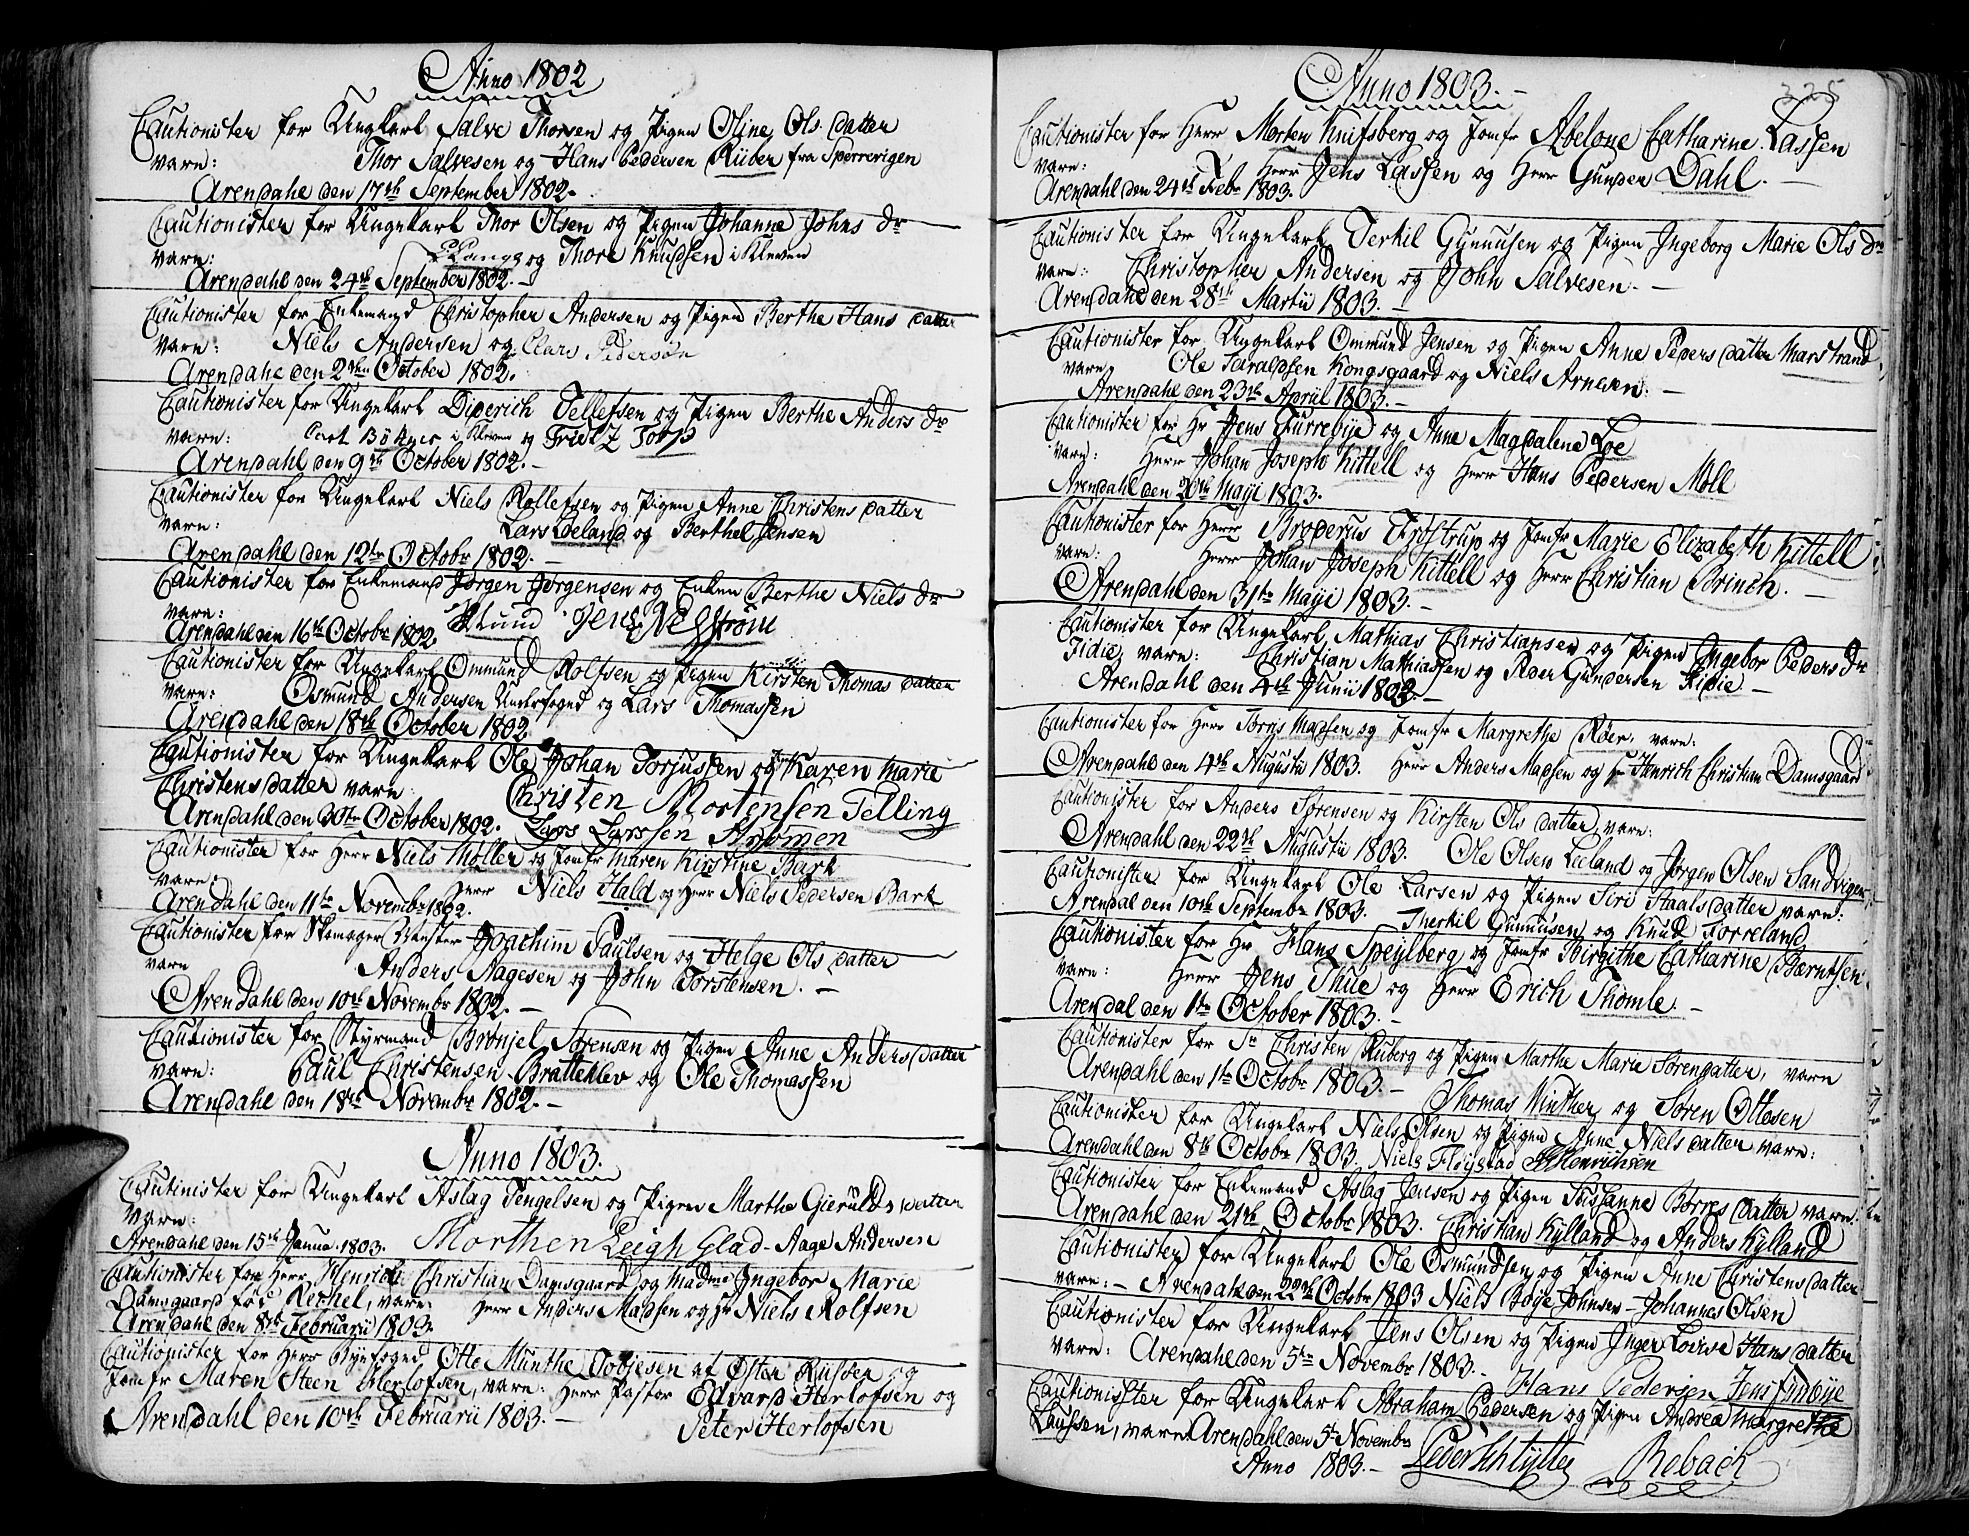 Anno 1802
Cautionister for Ungkarl Salve Thorsen og Pigen Oline Ols datter
vare: Thor Salvesen og Hans Pedersen Rüber fra Sperrevigen
Arendahl den 17th September 1802.
Cautionister for Ungekarl Thor Olsen og Pigen Johanne Johns dr
vare: og Thore Knudsen i Kleven
Arendahl den 24th September 1802.
Cautionister for Enkemand Christopher Andersen og Pigen Berthe Hans datter
vare: Niels Andersen og Clars Pedersøn
Arendahl den 2den October 1802.
Cautionister for Ungekarl Diderich Tellefsen og Pigen Berthe Anders dr
vare: Carl Bøkner i Kleven og Fridz Torp
Arendahl den 9th October 1802.
Cautionister for Ungekarl Niels Rollefsen og Pigen Anne Christens datter
vare: Lars Loeland og Berthel Jensen
Arendahl den 12te Octobr 1802.
Cautionister for Enkemand Jørgen Jørgensen og Enken Berthe Niels dr
vare: Lund Jens Nelström
Arendahl den 16th Octobr 1802.
Cautionister for Ungekarl Ommund Rolfsen og Pigen Kirsten Thomas datter
vare: Osmund Andersen Underfoged og Lars Thomassen
Arendahl den 18th October 1802
Cautionister for Ungekarl Ole Johan Torjussen og Karen Marie
Christensdatter vare Christen Mortensen Telling
Arendahl den 30te October 1802. Lars Larssen Strømen
Cautionister for Herr Niels Møller og Jomfr Maren Kirstine Bark
vare: Herr Niels Hald og Herr Niels Pedersen Bark
Arendahl den 11te Novembr 1802.
Cautionister for Skomager Mester Joachim Paulsen og Helge Ols datter
vare Anders Aagesen og John Torstensen.
Arendahl den 10th Novembr 1802.
Cautionister for Styrmand Brønjel Sørensen og Pigen Anne Anders datter
vare: Paul Christensen Bratteklev og Ole Thomassen
Arendahl den 18th Novembr 1802.
Anno 1803.
Cautinister for Ungekarl Aslag Tengelsen og Pigen Marthe Gierulds datter
vare:
Arendahl den 15th Janua. 1803. Morthen Leigh Glad - Aage Andersen
Cautionister for Herr Henrich Christian Damsgaard og Madme Ingebor Marie
Damsgaard fød Kerchel, vare: Herr Anders Madsen og Hr Niels Rolfsen
Arendahl den 8th Februarii 1803.
Cautionister for Herr Byefoged Otte Munthe Tobiesen af Øster Riisøer og
Jomfr Maren Steen Herlofsen, vare: Herr Pastor Edvard Herlofsen og
Arendahl den 10th Februarii 1803. Peter Herlofsen
325
Anno 1803.
Cautionister for Herr Morten Knifsberg og Jomfr Abelone Catharine Lassen
vare: Herr Jens Lassen og Herr Gunder Dahl.
Arendahl den 24th Febr 1803.
Cautionister for Ungekarl Terkil Gunnusen og Pigen Ingeborg Marie Ols dr
vare: Christopher Andersen og John Salvesen.
Arendahl den 28th Martii 1803.
Cautionister for Ungekarl Ommund Jensen og Pigen Anne Peders datter Marstrand
vare Ole Taraldsen Kongsgaard og Niels Arnesen:
Arendahl den 23th April 1803.
Cautionister for Hr Jens Furrebye og Anne Magdalene Loe
vare: Herr Johan Joseph Kittell og Herr Hans Pedersen Moll
Arendahl den 20th Maji 1803.
Cautionister for Herr Broderus Trydstrup og Jomfr Marie Elizabeth Kittell
vare: Herr Johan Joseph Kittell og Herr Christian Brinch.
Arendahl den 31te Maji 1803.
Cautionister for Ungekarl Mathias Christiansen og Pigen Ingebor Peders dr
Fidie, vare: Christian Mathiassen og Peder Gundersen Fidie
Arendahl den 4th Junii 1802.
Cautionister for Herr Tørris Madsen og Jomfr Margrethe Røer, vare:
Arendahl den 4th Augusti 1803. Herr Anders Madsen og Hr Henrich Christian Damsgaard
Cautionister for Anders Sørensen og Kirsten Ols datter, vare:
Arendahl den 22th Augusti 1803. Ole Olsen Leeland og Jørgen Olsen Sandvigen
Cautionister for Ungekarl Ole Larsen og Pigen Siri Staalsdatter vare:
Arendal den 10th Septembr 1803. Therkil Gunnusen og Knud Torreland
Cautionister for Hr. Hans Speylberg og Jomfr Birgithe Catharine Berntsen
vare: Herr Jens Thue og Herr Erich Thomle.
Arendal den 1te October 1803.
Cautionister for Sr Christen Ruberg og Pigen Marthe Marie Sørendatter, vare
Arendahl den 1te Octobr 1803. Thomas Winther og Søren Ottesen
Cautionister for Ungekarl Niels Olsen og Pigen Anne Niels datter vare:
Arendahl den 8th Octobr 1803. Niels Fløystad Henrichsen
Cautionister for Enkemand Aslag Jensen og Pigen Susanne Børres datter vare:
Arendahl den 21th Octobr 1803. Christian Kylland og Anders Kylland
Cautionister for Ungekarl Ole Osmundsen og Pigen Anne Christensdatter
vare: - Arendahl den 22th Octobr 1803 Niels Boye Johnsen - Johannes Olsen
Cautionister for Ungekarl Jens Olsen og Pigen Inger Lovise Hans datter
vare: Arendahl den 5te Novembr 1803. Hans Pedersen Jens Finbye
Cautionister for Ungekarl Abraham Pedersen og Pigen Andrea Margrethe
Laursen, vare Arendahl den 5te Novembr
Anno 1803. Peder Schlytter Rebach